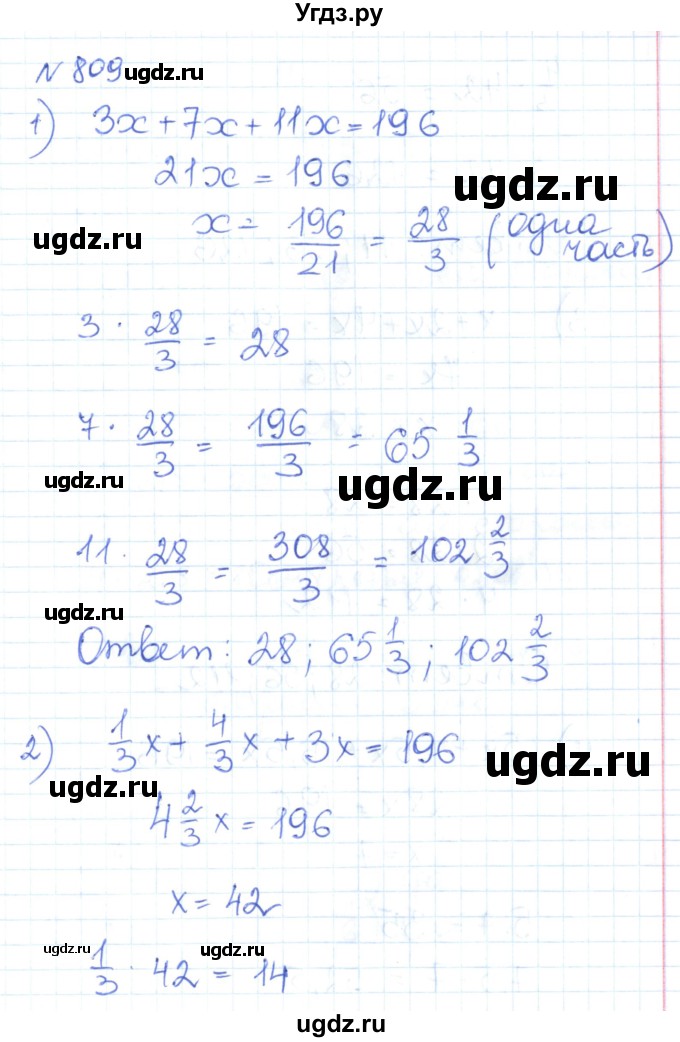 Угдз.ру
N 809 ugdz.ru
1) 3x + 7x + 11x = 196
21x = 196
ugdz.ru
ugdz.ru x = 196/21 = 28/3 (одна часть)
3 · 28/3 = 28
7 · 28/3 = 196/3 = 65 1/3
ugdz.ru ugdz.ru
11 · 28/3 = 308/3 = 102 2/3
ugdz.ru
Ответ: 28; 65 1/3; 102 2/3
2) 1/3 x + 4/3 x + 3x = 196
ugdz.ru ugdz.ru
4 2/3 x = 196
x = 42
ugdz.ru ugdz.ru
1/3 · 42 = 14
ugdz.ru